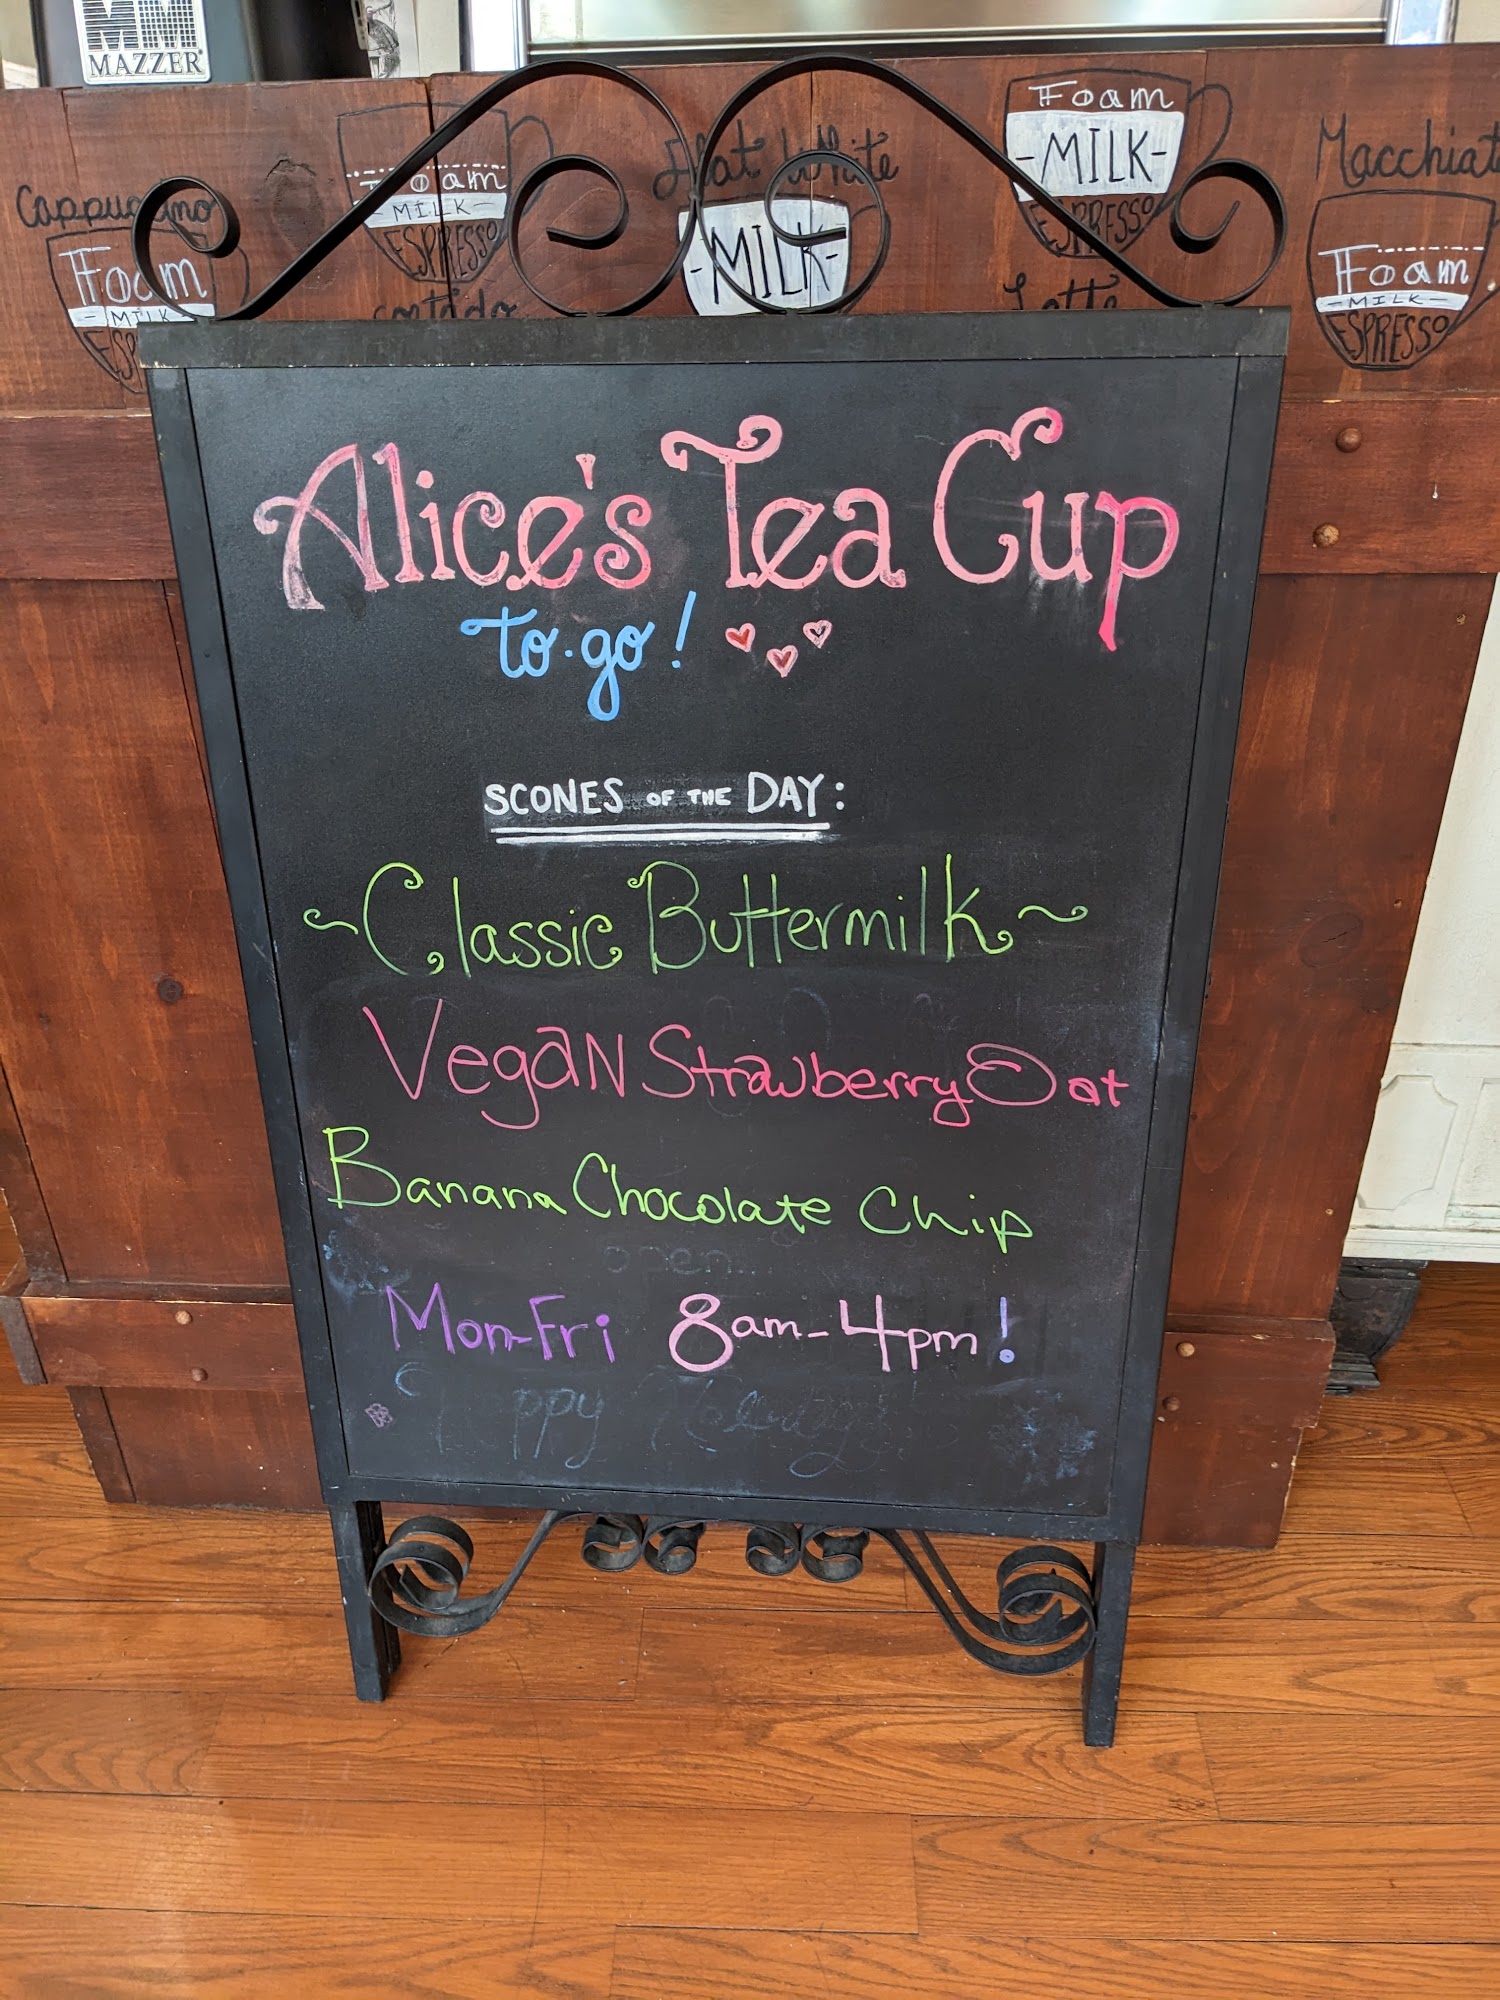 MAZZER
Cappuccino
Foam
MILK
ESP
Foam
MILK
ESPRESSO
cortado
Flat White
MILK
Foam
MILK
ESPRESSO
Latte
Macchiat
Foam
MILK
ESPRESSO
Alice's Tea Cup
to·go!
SCONES OF THE DAY:
~Classic Buttermilk~
Vegan Strawberry Oat
Banana Chocolate Chip
open...
Mon-Fri 8am-4pm!